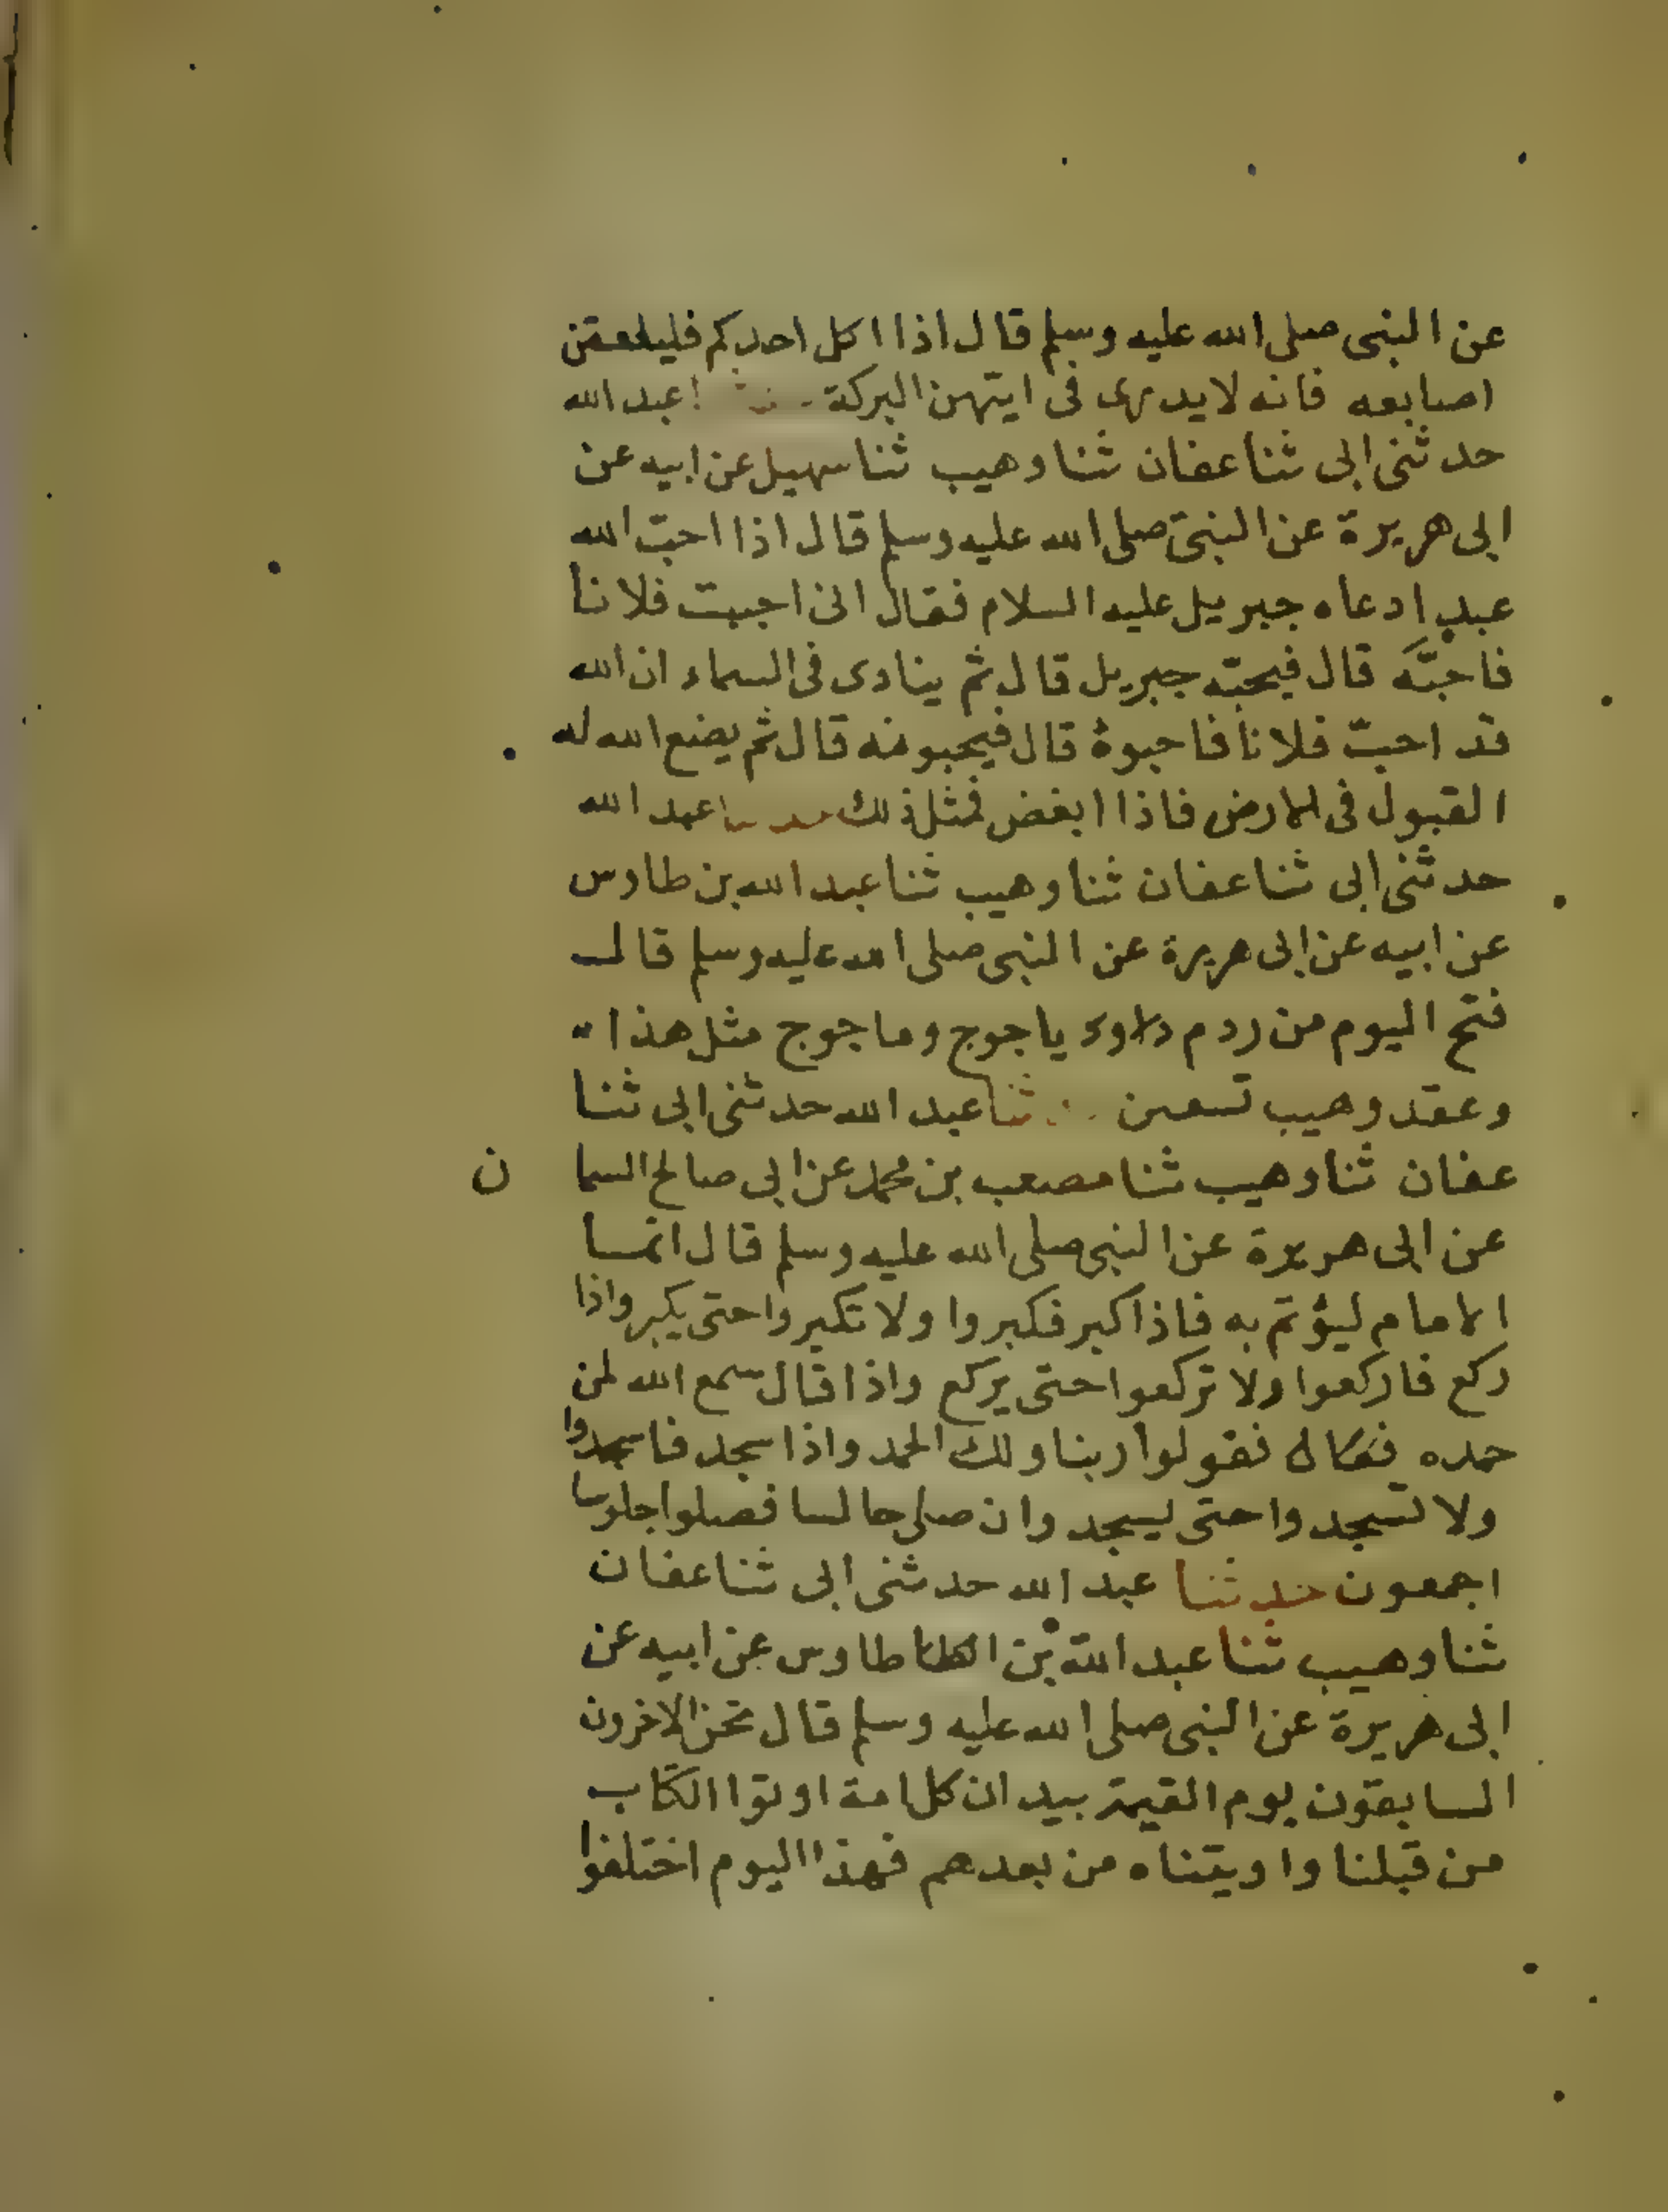 عن النبى صلى الله عليه وسلم قال اذا اكل احدكم فليلعقن
اصابعه فانه لا يدرى فى ايتهن البركة عبد الله
حدثنى ابى ثنا عفان ثنا وهيب ثنا سهيل عن ابيه عن
ابى هريرة عن النبىّ صلى الله عليه وسلم قال اذا احبّ الله
عبدا دعاه جبريل عليه السلام فقال انى احببت فلانا
فاحبّه قال فيحبّه جبريل قال ثم ينادى فى السماء ان الله
قد احبّ فلانا فاحبوه قال فيحبونه قال ثم يضع الله له
القبول فى الارض فاذا ابغض فمثل ذلك حدثنا عبد الله
حدثنى ابى ثنا عفان ثنا وهيب ثنا عبد الله بن طاوس
عن ابيه عن ابى هريرة عن النبى صلى الله عليه وسلم قال
فتح اليوم من ردم ياجوج وماجوج مثل هذا
وعقد وهيب تسعين حدثنا عبد الله حدثنى ابى ثنا
عفان ثنا وهيب ثنا مصعب بن محمد عن ابى صالح السمان
عن ابى هريرة عن النبى صلى الله عليه وسلم قال انما
الامام ليؤتمّ به فاذا كبر فكبروا ولا تكبروا حتى يكبر واذا
ركع فاركعوا ولا تركعوا حتى يركع واذا قال سمع الله لمن
حمده فقولوا ربنا ولك الحمد واذا سجد فاسجدوا
ولا تسجدوا حتى يسجد وان صلى جالسا فصلوا جلوسا
اجمعون حدثنا عبد الله حدثنى ابى ثنا عفان
ثنا وهيب ثنا عبد الله بن طاوس عن ابيه عن
ابى هريرة عن النبى صلى الله عليه وسلم قال نحن الاخرون
السابقون يوم القيمة بيد ان كل امة اوتوا الكتاب
من قبلنا واويتناه من بعدهم فهذا اليوم اختلفوا